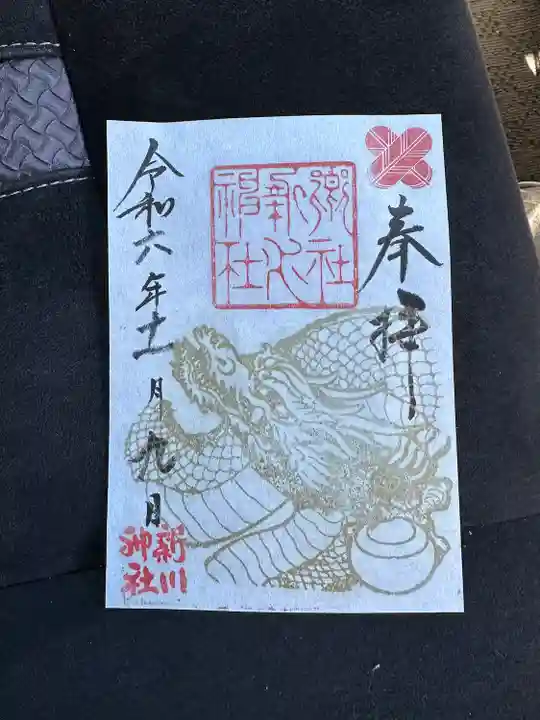 奉拝
郷社
新川
神社
令和六年十一月九日
新川
神社